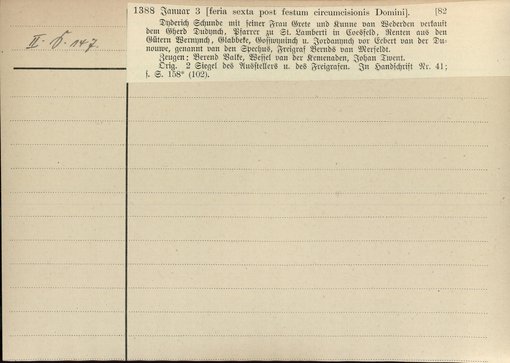 1388 Januar 3 [feria sexta post festum circumcisionis Domini]. [82
Dyderich Schunde mit seiner Frau Grete und Kunne van Wederden verkauft
dem Gherd Dudynch, Pfarrer zu St. Lamberti in Coesfeld, Renten aus den
Gütern Wernynch, Glabbeke, und Jordanynch vor Eebert van der Du-
nouwe, genannt van den Sperhus, Freigraf Bernds van Merfeldt.
Zeugen: Berend Valke, Wessel van der Kemenaden, Johan Twent.
Orig. 2 Siegel des Ausstellers u. des Freigrafen. In Handschrift Nr. 41;
s. S. 158* (102).
II. 147